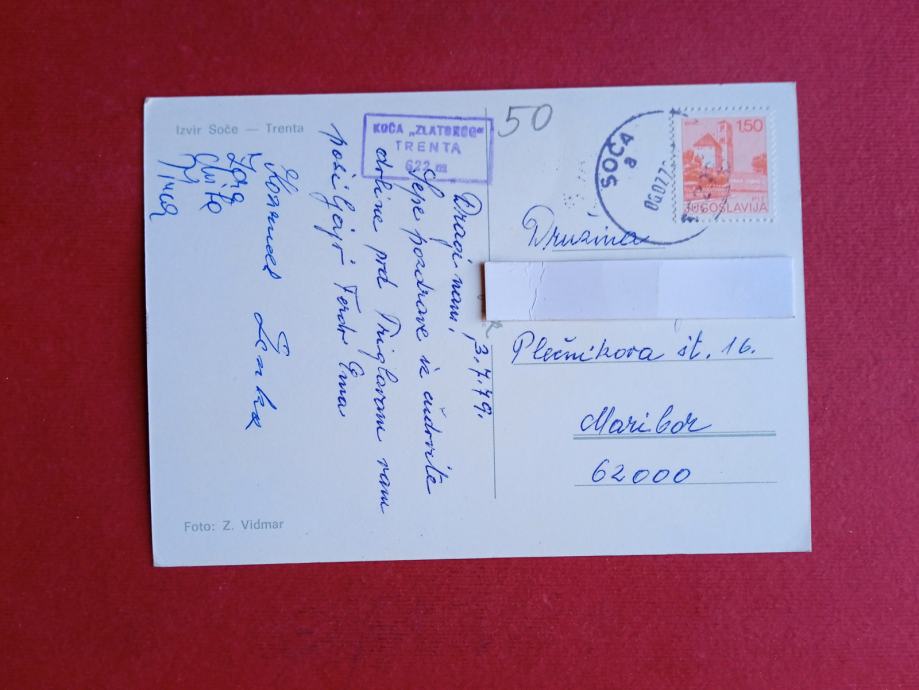 Izvir Soče — Trenta
KOČA „ZLATOROG"
TRENTA
622 m
50
SOČA
a
1,50
JUGOSLAVIJA
Dragi nam, 3.7.79.
Lepe pozdrave iz čudovite
doline pod Triglavom vam
pošiljajo Ferdo Ema
Lenka
Mirca
Družina
Plečnikova št. 16.
Maribor
62000
Foto: Z. Vidmar